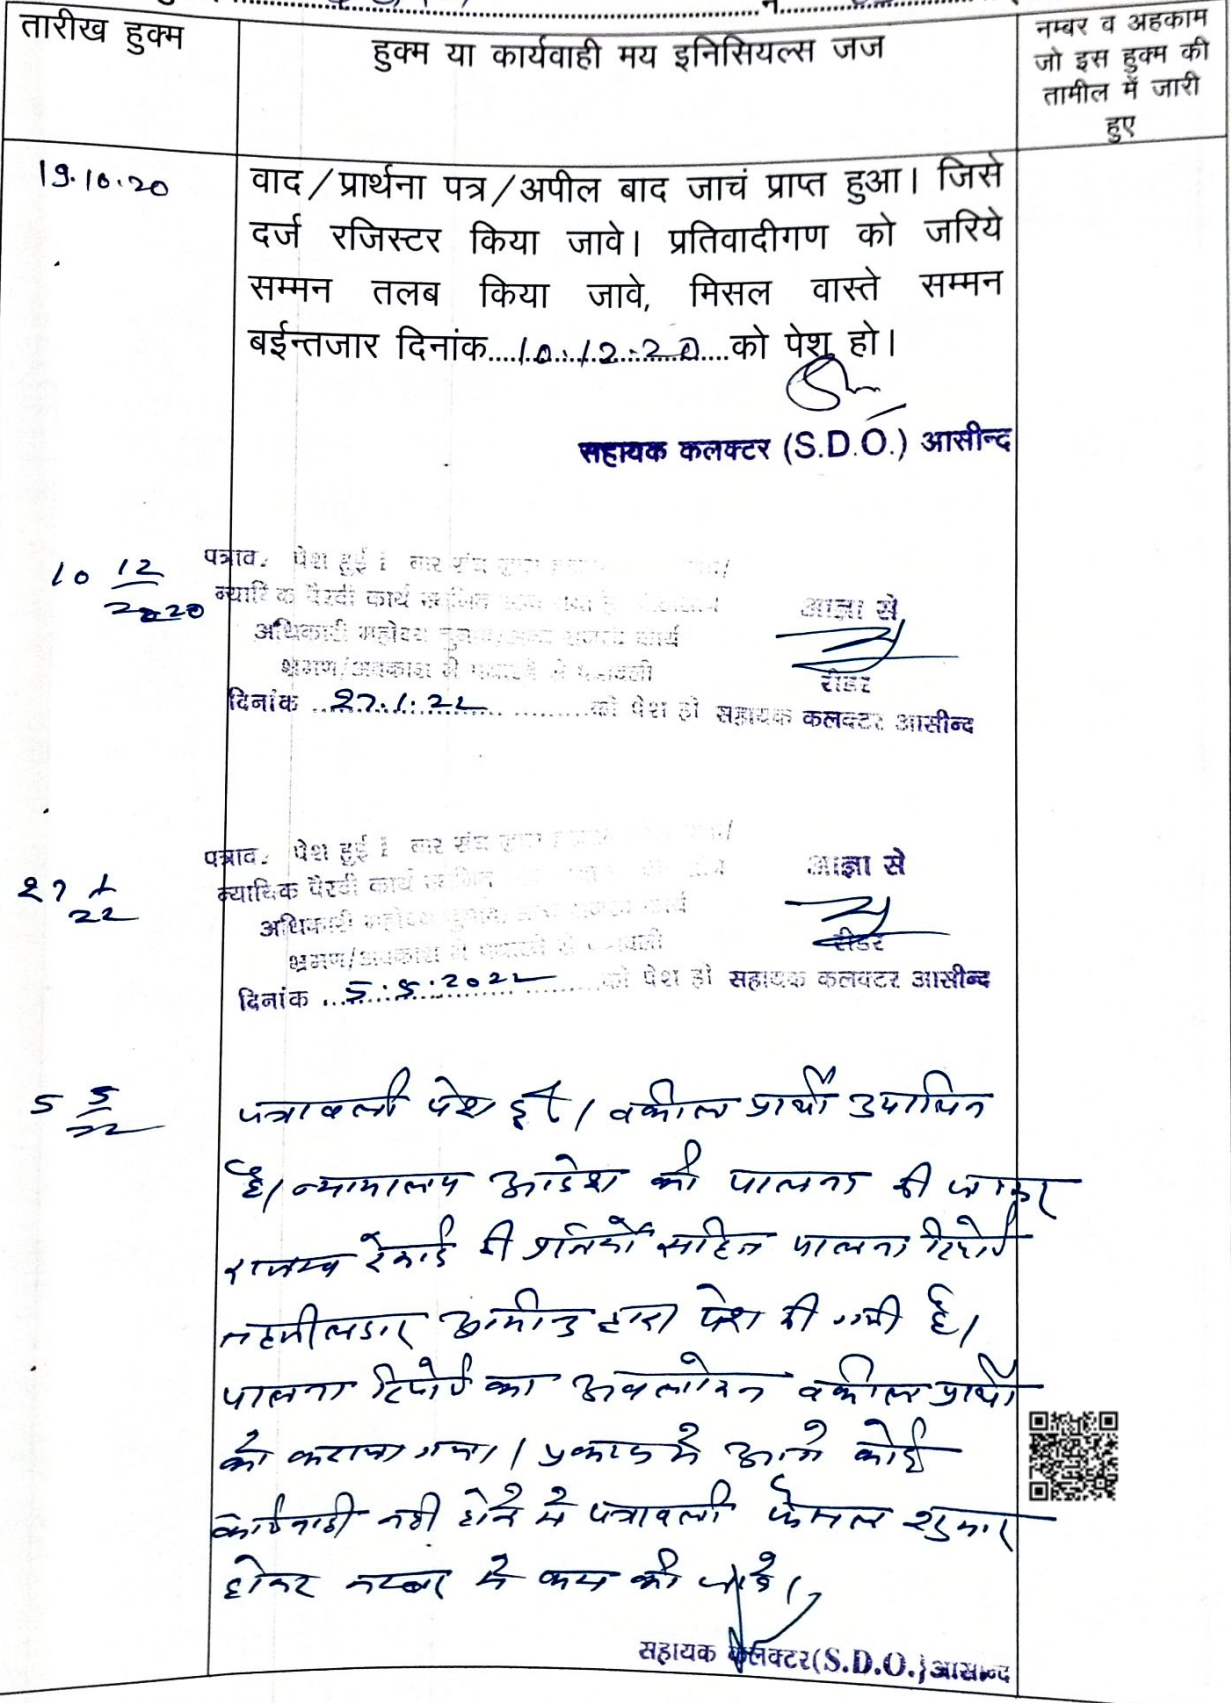 तारीख हुक्म
हुक्म या कार्यवाही मय इनिसियल्स जज
नम्बर व अहकाम
जो इस हुक्म की
तामील में जारी
हुए
19.10.20
वाद/प्रार्थना पत्र/अपील बाद जाचं प्राप्त हुआ। जिसे
दर्ज रजिस्टर किया जावे। प्रतिवादीगण को जरिये
सम्मन तलब किया जावे, मिसल वास्ते सम्मन
बईन्तजार दिनांक....10.12.20....को पेश हो।
सहायक कलक्टर (S.D.O.) आसीन्द
10 12
2020
पत्राव. पेश हुई। बार संघ
न्यायिक पैरवी कार्य
आज्ञा से
अधिकारी महोदय
भ्रमण/अवकाश
रीडर
दिनांक ..27.1.22.......को पेश हो सहायक कलक्टर आसीन्द
27 1
22
पत्राव. पेश हुई। बार संघ
आज्ञा से
न्यायिक पैरवी कार्य
अधिकारी
रीडर
भ्रमण/अवकाश
दिनांक ..5.5.2022.......को पेश हो सहायक कलक्टर आसीन्द
5 5
22
पत्रावली पेश हुई। वकील प्रार्थी उपस्थित
है। न्यायालय आदेश की पालना की जाकर
राजस्व रेकार्ड की प्रतियों सहित पालना रिपोर्ट
तहसीलदार आसीन्द द्वारा पेश की गयी है।
पालना रिपोर्ट का अवलोकन वकील प्रार्थी
को कराया गया। प्रकरण में आगे कोई
कार्यवाही नहीं होने से पत्रावली फैसल शुमार
होकर नम्बर से कम की जावे।
सहायक कलक्टर(S.D.O.)आसीन्द